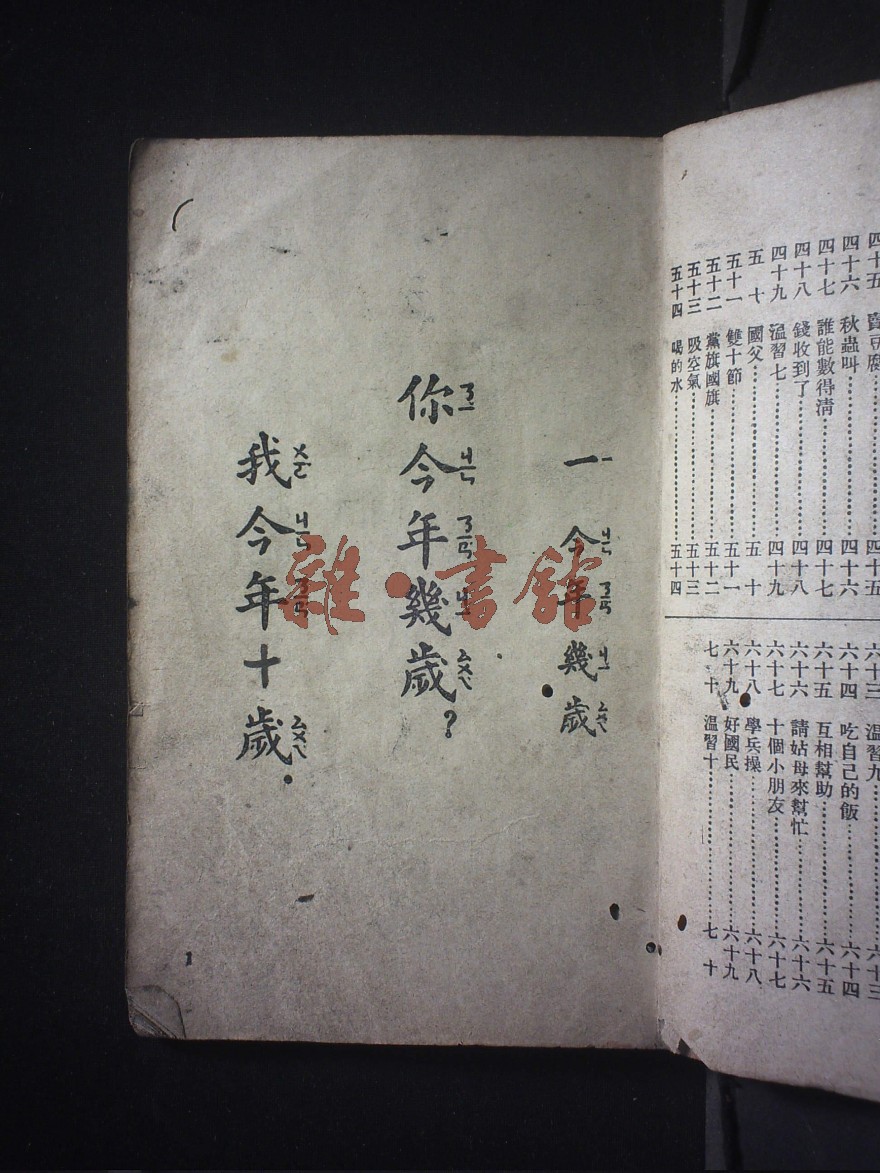 四十五 賣豆腐⋯⋯四十五
四十六 秋蟲叫⋯⋯四十六
四十七 誰能數得清⋯⋯四十七
四十八 錢收到了⋯⋯四十八
四十九 溫習七⋯⋯四十九
五十 國父⋯⋯五十
五十一 雙十節⋯⋯五十一
五十二 黨旗國旗⋯⋯五十二
五十三 吸空氣⋯⋯五十三
五十四 喝的水⋯⋯五十四
六十三 溫習九⋯⋯六十三
六十四 吃自己的飯⋯⋯六十四
六十五 互相幫助⋯⋯六十五
六十六 請姑母來幫忙⋯⋯六十六
六十七 十個小朋友⋯⋯六十七
六十八 學兵操⋯⋯六十八
六十九 好國民⋯⋯六十九
七十 溫習十⋯⋯七十
一 今年幾歲
ㄧ ㄐㄧㄣ ㄋㄧㄢ ㄐㄧ ㄙㄨㄟ
你今年幾歲?
ㄋㄧ ㄐㄧㄣ ㄋㄧㄢ ㄐㄧ ㄙㄨㄟ
我今年十歲.
ㄨㄛ ㄐㄧㄣ ㄋㄧㄢ ㄙㄨㄟ
1
雜·書館